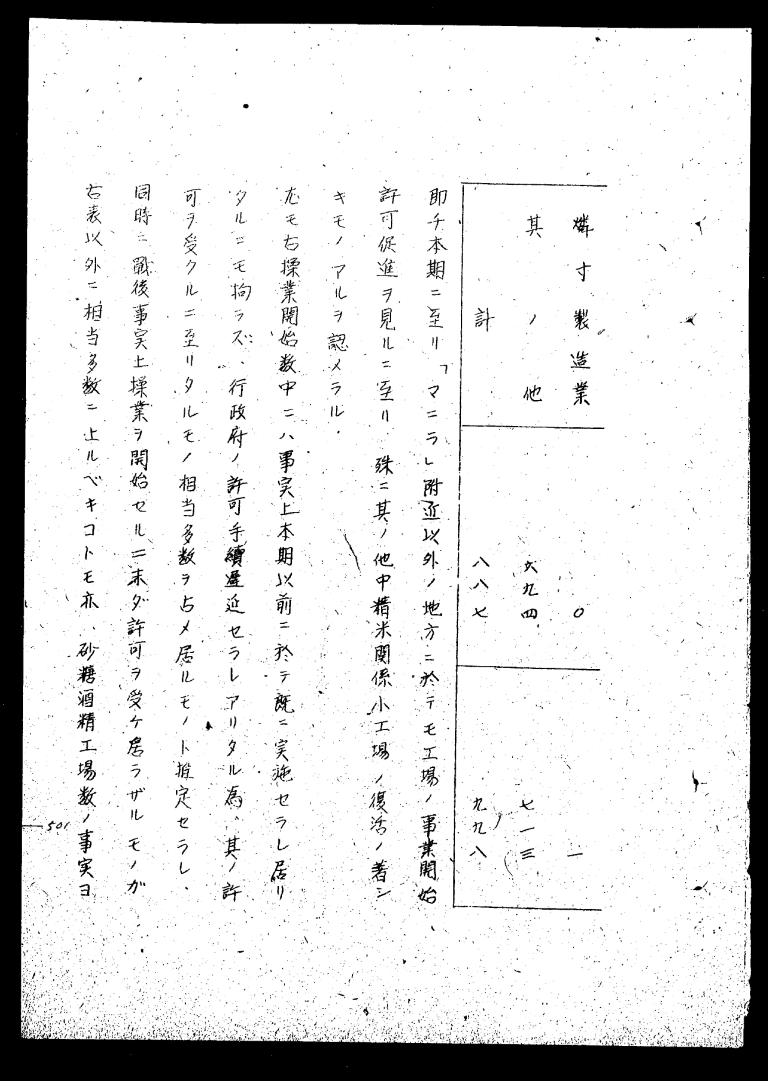 燐寸製造業 〇 一
其ノ他 六九四 七一三
計 八八七 九九八
即チ本期ニ至リ「マニラ」附近以外ノ地方ニ於テモ工場ノ事業開始、
許可促進ヲ見ルニ至リ、殊ニ其ノ他中精米関係小工場ノ復活ノ著シ
キモノアルヲ認メラル.
尤モ右操業開始数中ニハ事実上本期以前ニ於テ既ニ実施セラレ居リ
タルニモ拘ラズ、行政府ノ許可手続遅延セラレアリタル為、其ノ許
可ヲ受クルニ至リタルモノ相当多数ヲ占メ居ルモノト推定セラレ、
同時ニ戰後事実上操業ヲ開始セルニ未ダ許可ヲ受ケ居ラザルモノガ
右表以外ニ相当多数ニ上ルベキコトモ亦、砂糖酒精工場数ノ事実ヨ
501